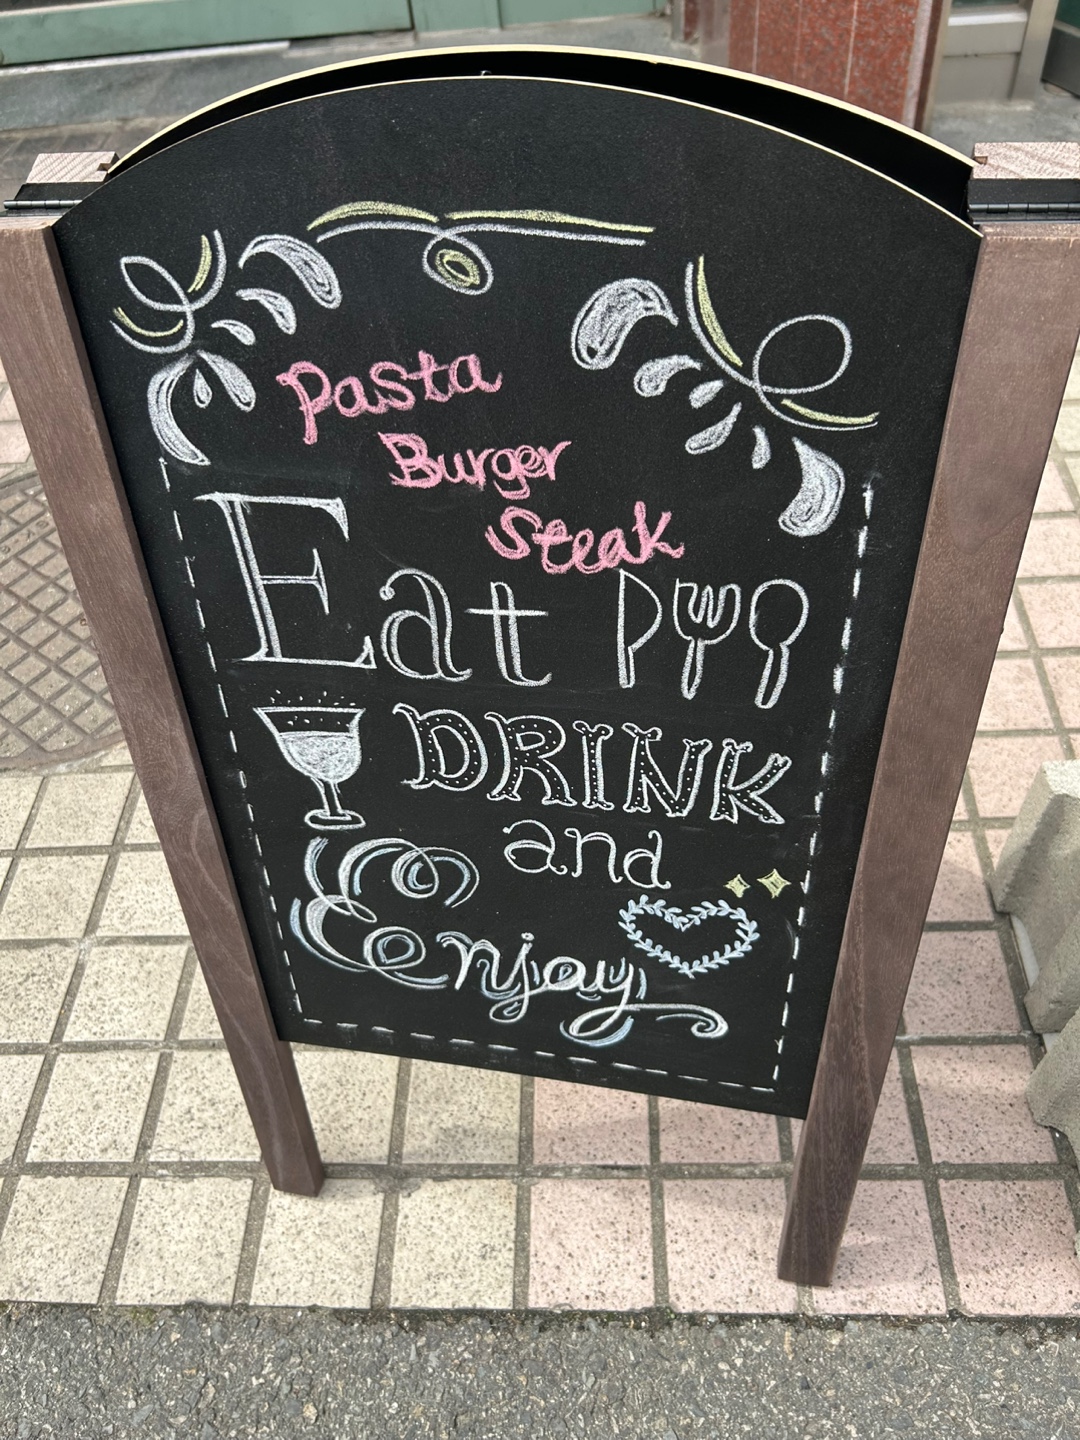 Pasta
Burger
Steak
Eat
DRINK
and
Enjoy